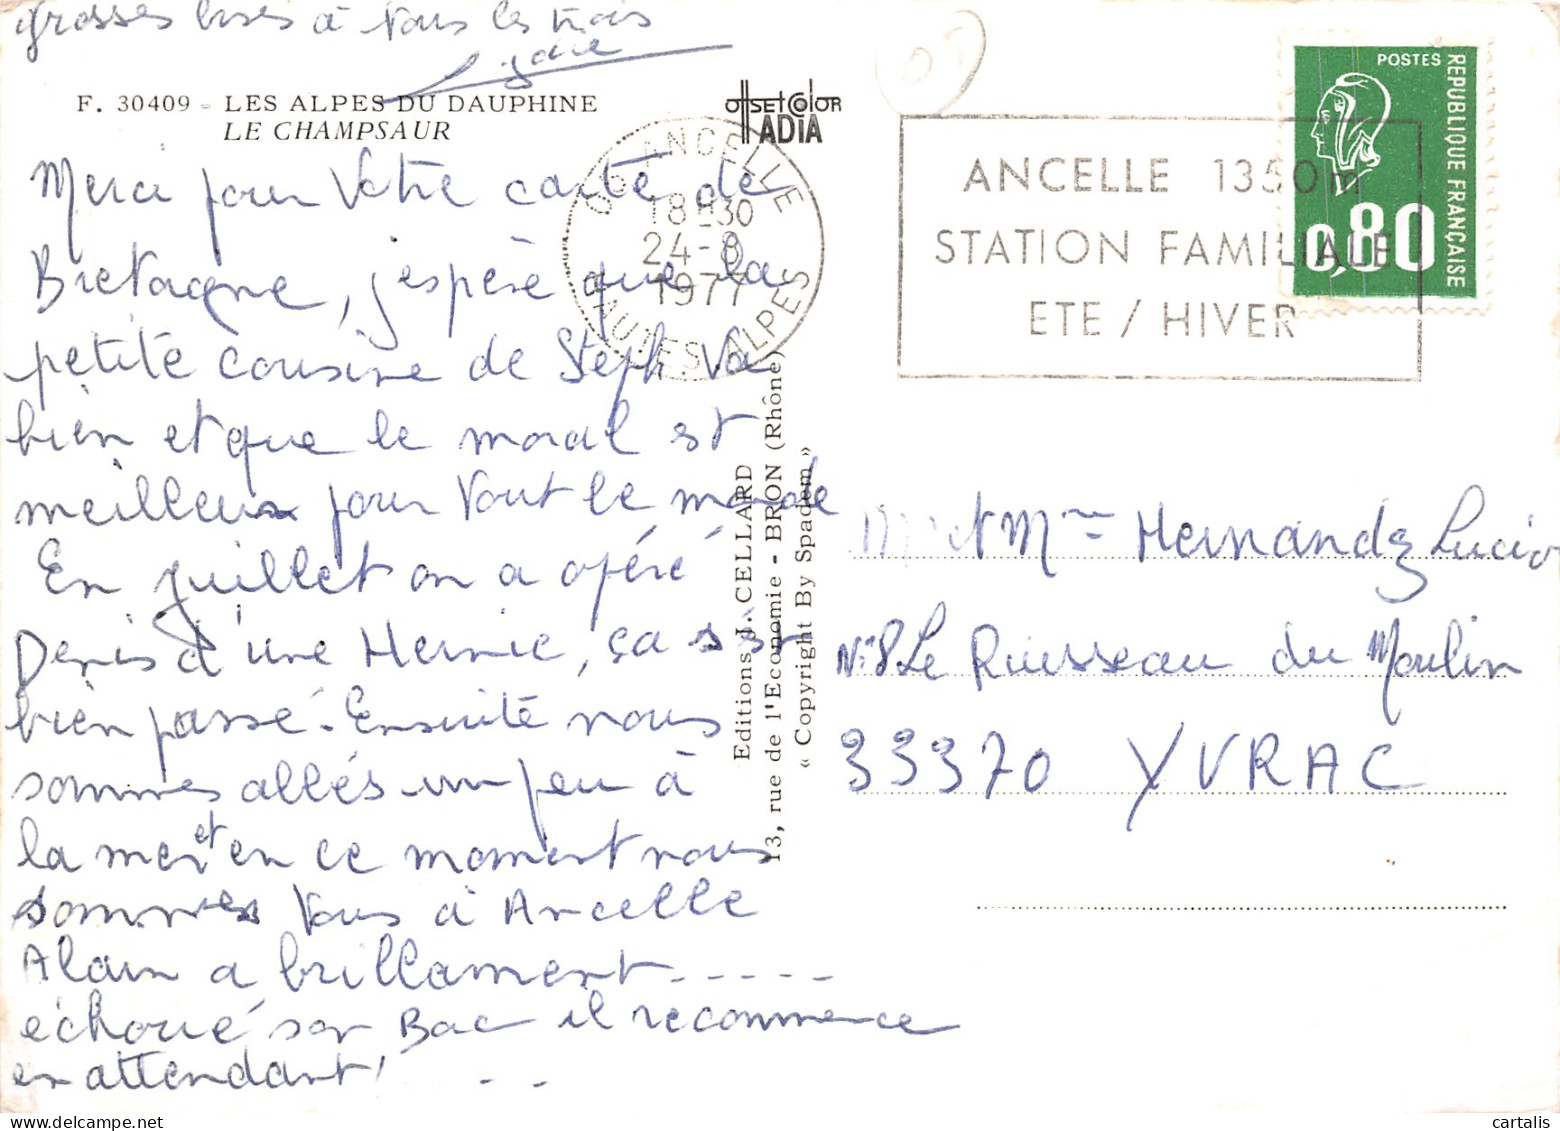 grosses bises à tous les trois
Lydie
F. 30409 - LES ALPES DU DAUPHINE
LE CHAMPSAUR
offset color
ADIA
Merci pour votre carte de
Bretagne, j'espère que la
petite cousine de Steph. va
bien et que le moral est
meilleur pour tout le monde
En juillet on a opéré
Denis d'une Hernie, ça s'est
bien passé. Ensuite nous
sommes allés un peu à
la mer et en ce moment nous
sommes tous à Ancelle
Alain a brillament - - - - -
échoué son Bac il recommence
en attendant! - -
05 ANCELLE
18H30
24-8
1977
HAUTES ALPES
ANCELLE 1350m
STATION FAMILIALE
ETE / HIVER
05
POSTES
REPUBLIQUE FRANÇAISE
0,80
Editions J. CELLARD
13, rue de l'Economie - BRON (Rhône)
« Copyright By Spadem »
Mr et Mme Hernandez Lucio
N°8 Le Ruisseau du Moulin
33370 YVRAC
cartalis